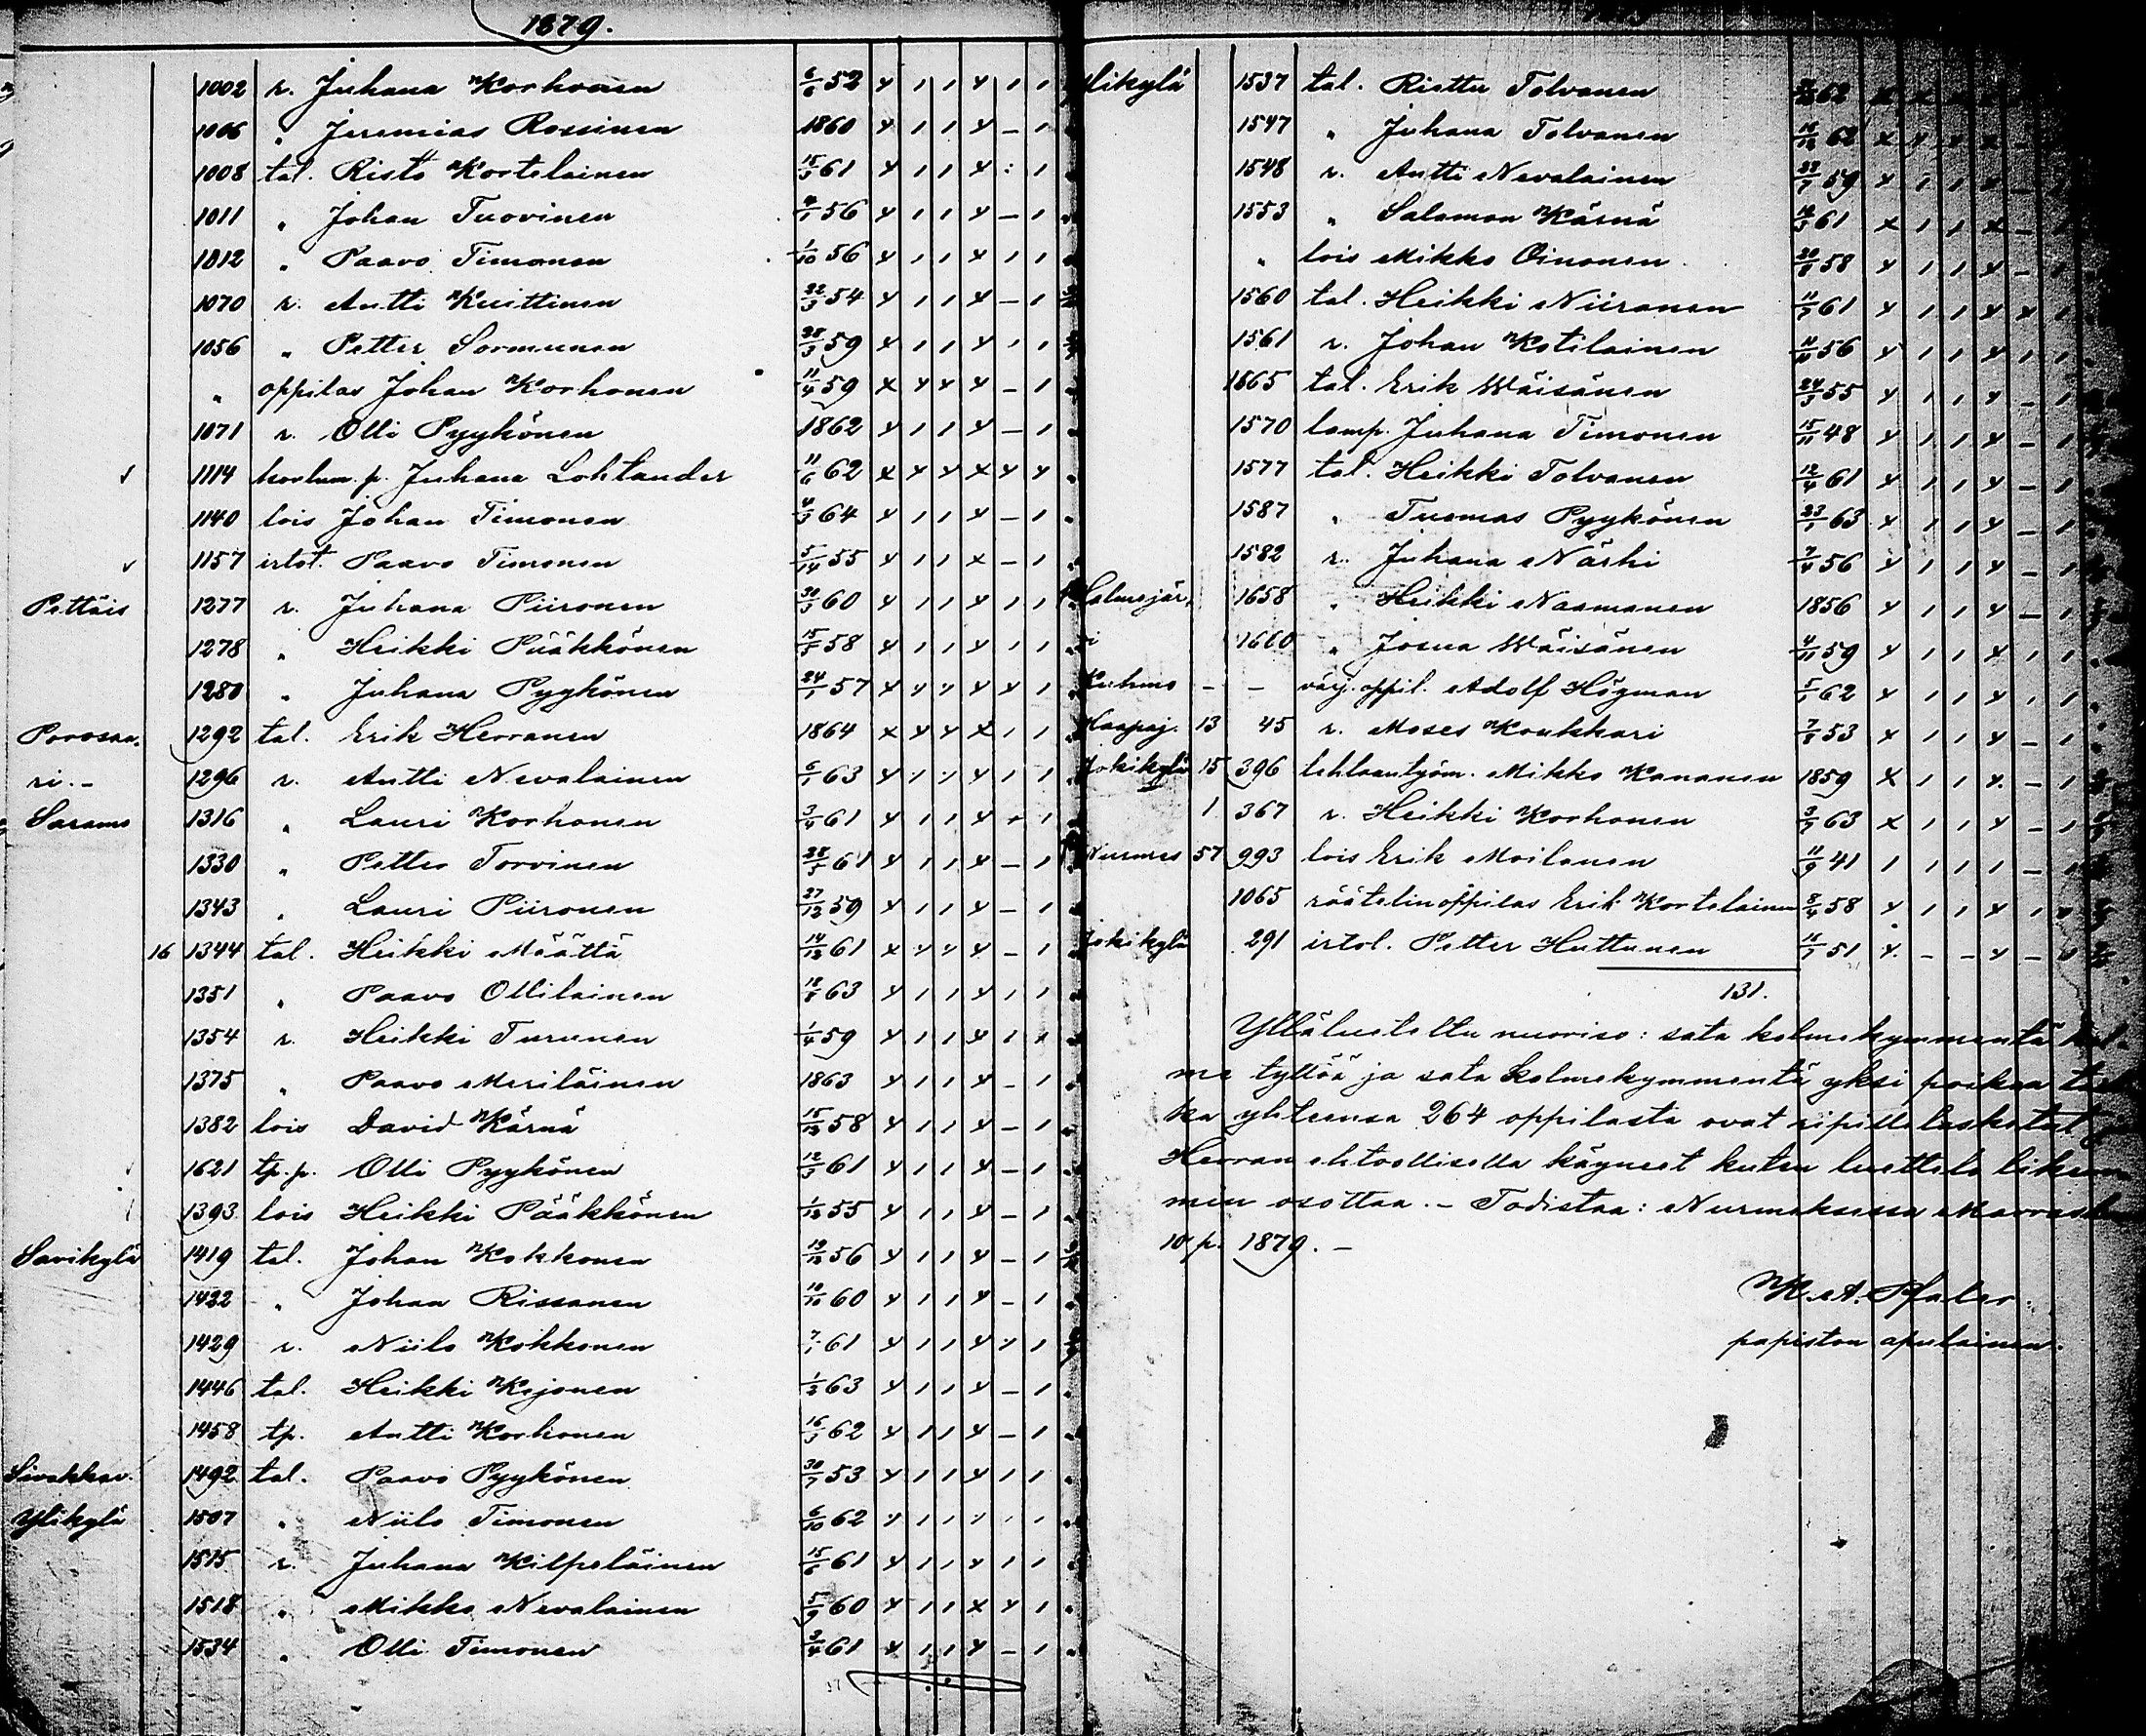 1879.
1002 r. Juhana Korhonen 6/6 52 x 1 1 x 1 1
1006 " Jeremias Rossinen 1860 x 1 1 x - 1
1008 tal. Risto Kortelainen 15/3 61 x 1 1 x : 1
1011 " Johan Tuovinen 4/1 56 x 1 1 x - 1
1012 " Paavo Timonen 1/10 56 x 1 1 x 1 1
1070 r. Antti Kuittinen 22/3 54 x 1 1 x - 1
1056 " Petter Sormunen 28/3 59 x 1 1 x 1 1
" oppilas Johan Korhonen 11/4 59 x x x x - 1
1071 r. Olli Pyykönen 1862 x 1 1 x - 1
1114 koulum. p. Juhana Lohlander 11/6 62 x x x x x x
1140 lois Johan Timonen 4/3 64 x 1 1 x - 1
1157 irtol. Paavo Timonen 5/14 55 x 1 1 x - 1
Pettäis 1277 r. Juhana Piironen 30/3 60 x 1 1 x 1 1
1278 " Heikki Pääkkönen 15/5 58 x 1 1 x 1 1
1280 " Juhana Pyykönen 24/1 57 x x x x x 1
Porosaa- 1292 tal. Erik Herranen 1864 x x x x 1 1
ri.- 1296 r. Antti Nevalainen 6/1 63 x 1 1 x 1 1
Saramo 1316 " Lauri Korhonen 3/4 61 x 1 1 x + 1
1330 " Petter Torvinen 28/5 61 x 1 1 x - 1
1343 " Lauri Piironen 27/12 59 x 1 1 x - 1
16 1344 tal. Heikki Määttä 14/12 61 x x x x - 1
1351 " Paavo Ollilainen 18/8 63 x 1 1 x 1 1
1354 r. Heikki Turunen 1/4 59 x 1 1 x 1 x
1375 " Paavo Meriläinen 1863 x 1 1 x - 1
1382 lois David Kärnä 15/12 58 x 1 1 x - 1
1621 tp.p. Olli Pyykönen 12/3 61 x 1 1 x - 1
1393 lois Heikki Pääkkönen 1/12 55 x 1 1 x - 1
Savikylä 1419 tal. Johan Kokkonen 19/12 56 x 1 1 x - 1
1422 " Johan Rissanen 10/10 60 x 1 1 x - 1
1429 r. Niilo Kokkonen 7/1 61 x 1 1 x x 1
1446 tal. Heikki Kejonen 1/2 63 x 1 1 x - 1
1458 tp. Antti Korhonen 16/3 62 x 1 1 x - 1
Sivakkav. 1492 tal. Paavo Pyykönen 30/7 53 x 1 1 x 1 1
Ylikylä 1507 " Niilo Timonen 6/10 62 x 1 1 x 1 1
1515 r. Juhana Kilpeläinen 15/6 61 x 1 1 x 1 1
1518 " Mikko Nevalainen 5/9 60 x 1 1 x x 1
1534 " Olli Timonen 2/4 61 x 1 1 x - 1
Ylikylä 1537 tal. Riettu Tolvanen 62
1547 " Juhana Tolvanen 62 x x x x -
1548 r. Antti Nevalainen 28/7 59 x 1 1 x -
1553 " Salamon Kärnä 18/3 61 x 1 1 x -
" lois Mikko Oinonen 20/8 58 x 1 1 x -
1560 tal. Heikki Niiranen 11/7 61 x 1 1 x x 1
1561 r. Johan Kotilainen 11/10 56 x 1 1 x 1 1
1565 tal. Erik Wäisänen 24/3 55 x 1 1 x -
1570 lamp. Juhana Timonen 15/11 48 x 1 1 x - 1
1577 tal. Heikki Tolvanen 12/4 61 x 1 1 x - 1
1587 " Tuomas Pyykönen 23/1 63 x 1 1 x -
1582 r. Juhana Närhi 7/4 56 x 1 1 x - 1
Salmejär- 1658 " Heikki Naamanen 1856 x 1 1 x - 1
vi 1660 " Josua Wäisänen 4/11 59 x 1 1 x 1 1
Kuhmo - - värj. oppil. Adolf Högman 5/1 62 x 1 1 x 1 1
Haapaj. 13 45 r. Moses Koukkari 7/8 53 x 1 1 x - 1
Jokikylä 15 396 tehtaantyöm. Mikko Kananen 1859 x 1 1 x - 1
1 367 r. Heikki Korhonen 3/7 63 x 1 1 x - 1
Nurmes 57 993 lois Erik Moilanen 11/9 41 1 1 1 1 - 1
1065 räätelinoppilas Erik Kortelainen 8/4 58 x 1 1 x 1
Jokikylä 291 irtol. Petter Huttunen 16/7 51 x - - x -
131.
Ylläluetellu nuoriso: sata kolmekymmentä kol-
me tyttöä ja sata kolmekymmentä yksi poikaa
ka yhteensa 264 oppilasta ovat ripille lasketut
Herran ehtoollisella käyneet kuten luettelo
min osottaa. - Todistaa: Nurmeksessa
10 p. 1879. -
K. A. Pfaler.
papiston apulainen.